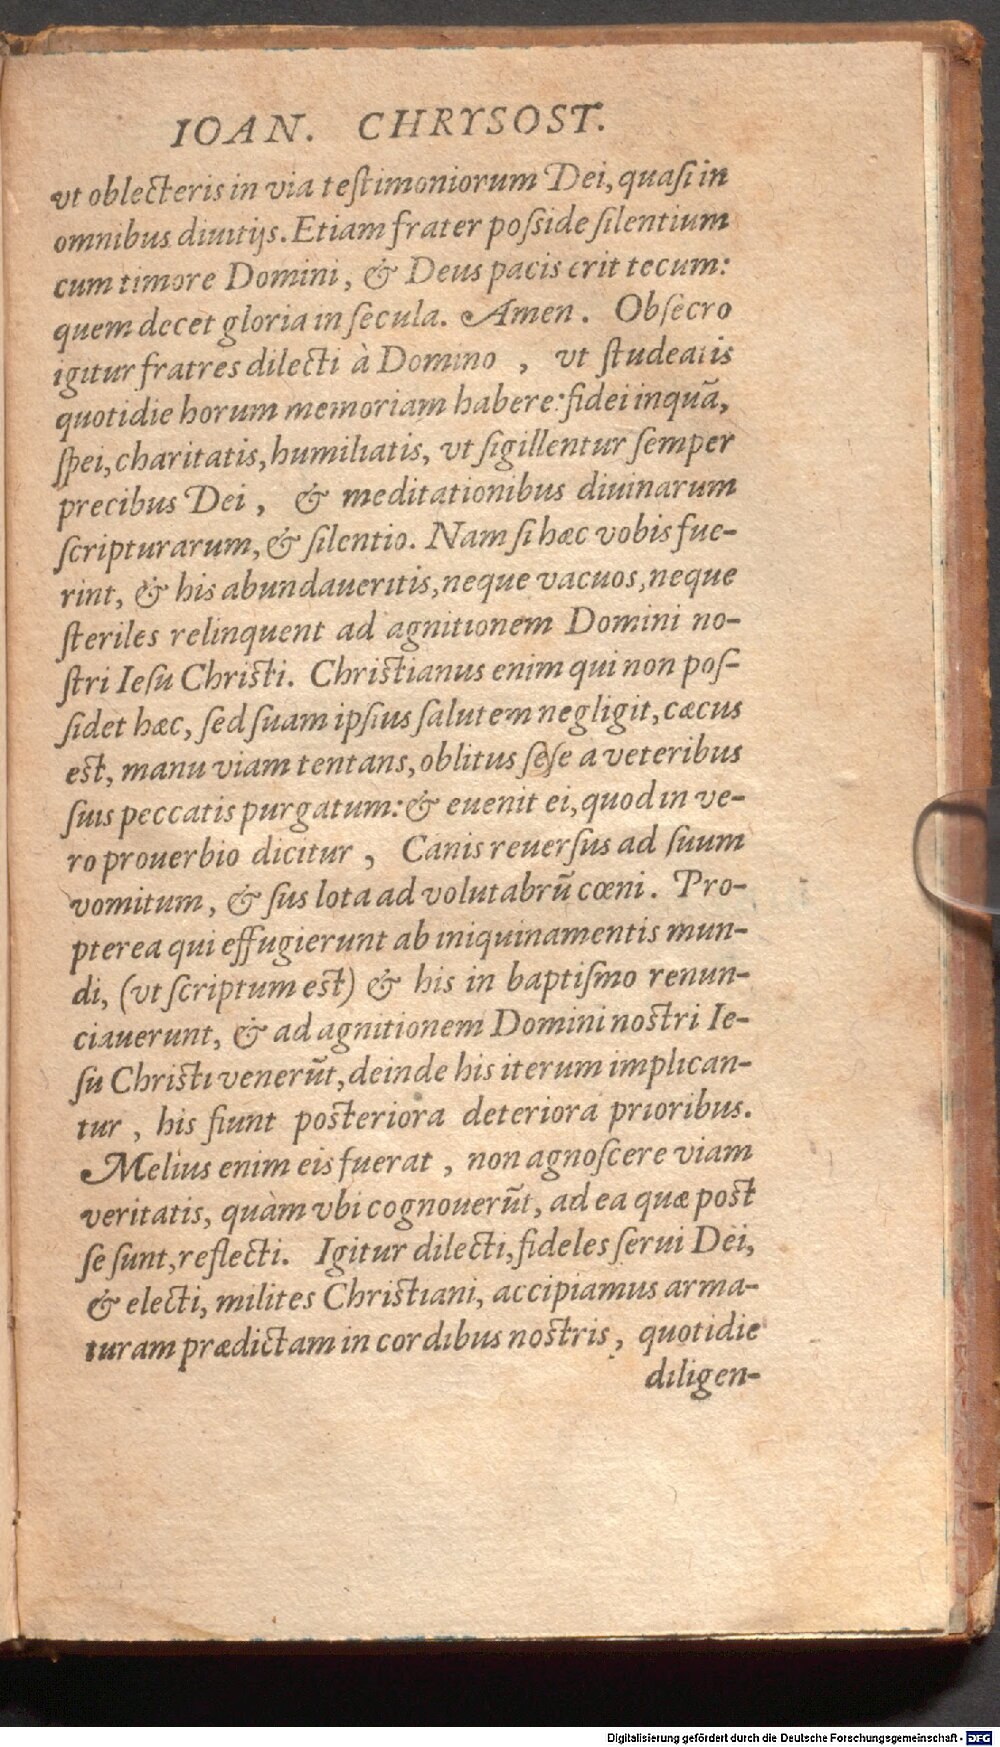 IOAN. CHRYSOST.
vt oblecteris in via teſtimoniorum Dei, quaſi in
omnibus diuitijs. Etiam frater poſside ſilentium
cum timore Domini, & Deus pacis erit tecum:
quem decet gloria in ſecula. Amen. Obſecro
igitur fratres dilecti à Domino, vt ſtudeatis
quotidie horum memoriam habere: fidei inquā,
ſpei, charitatis, humiliatis, vt ſigillentur ſemper
precibus Dei, & meditationibus diuinarum
ſcripturarum, & ſilentio. Nam ſi hæc vobis fue-
rint, & his abundaueritis, neque vacuos, neque
ſteriles relinquent ad agnitionem Domini no-
ſtri Ieſu Chriſti. Chriſtianus enim qui non poſ-
ſidet hæc, ſed ſuam ipſius ſalutem negligit, cæcus
eſt, manu viam tentans, oblitus ſeſe a veteribus
ſuis peccatis purgatum: & euenit ei, quod in ve-
ro prouerbio dicitur, Canis reuerſus ad ſuum
vomitum, & ſus lota ad volutabrū cœni. Pro-
pterea qui effugierunt ab iniquinamentis mun-
di, (vt ſcriptum eſt) & his in baptiſmo renun-
ciauerunt, & ad agnitionem Domini noſtri Ie-
ſu Chriſti venerūt, deinde his iterum implican-
tur, his fiunt poſteriora deteriora prioribus.
Melius enim eis fuerat, non agnoſcere viam
veritatis, quàm vbi cognouerūt, ad ea quæ poſt
ſe ſunt, reflecti. Igitur dilecti, fideles ſerui Dei,
& electi, milites Chriſtiani, accipiamus arma-
turam prædictam in cordibus noſtris, quotidie
diligen-
Digitalisierung gefördert durch die Deutsche Forschungsgemeinschaft - DFG